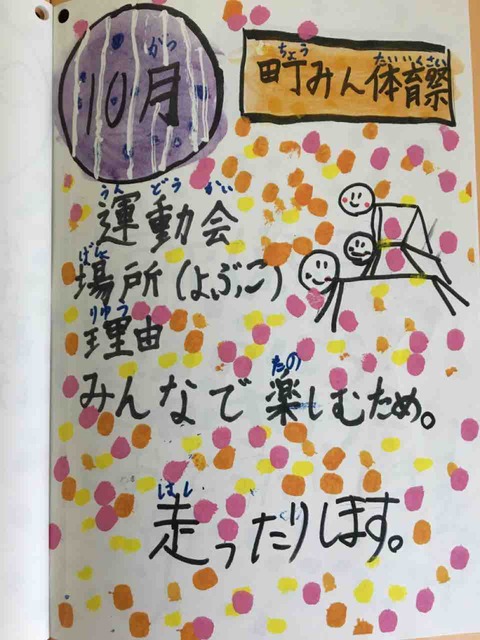 10月
がつ
町みん体育祭
ちょう
たいいくさい
運動会
うんどうかい
場所(よぶこ)
ばしょ
理由
りゆう
みんなで楽しむため。
たの
走ったりします。
はし